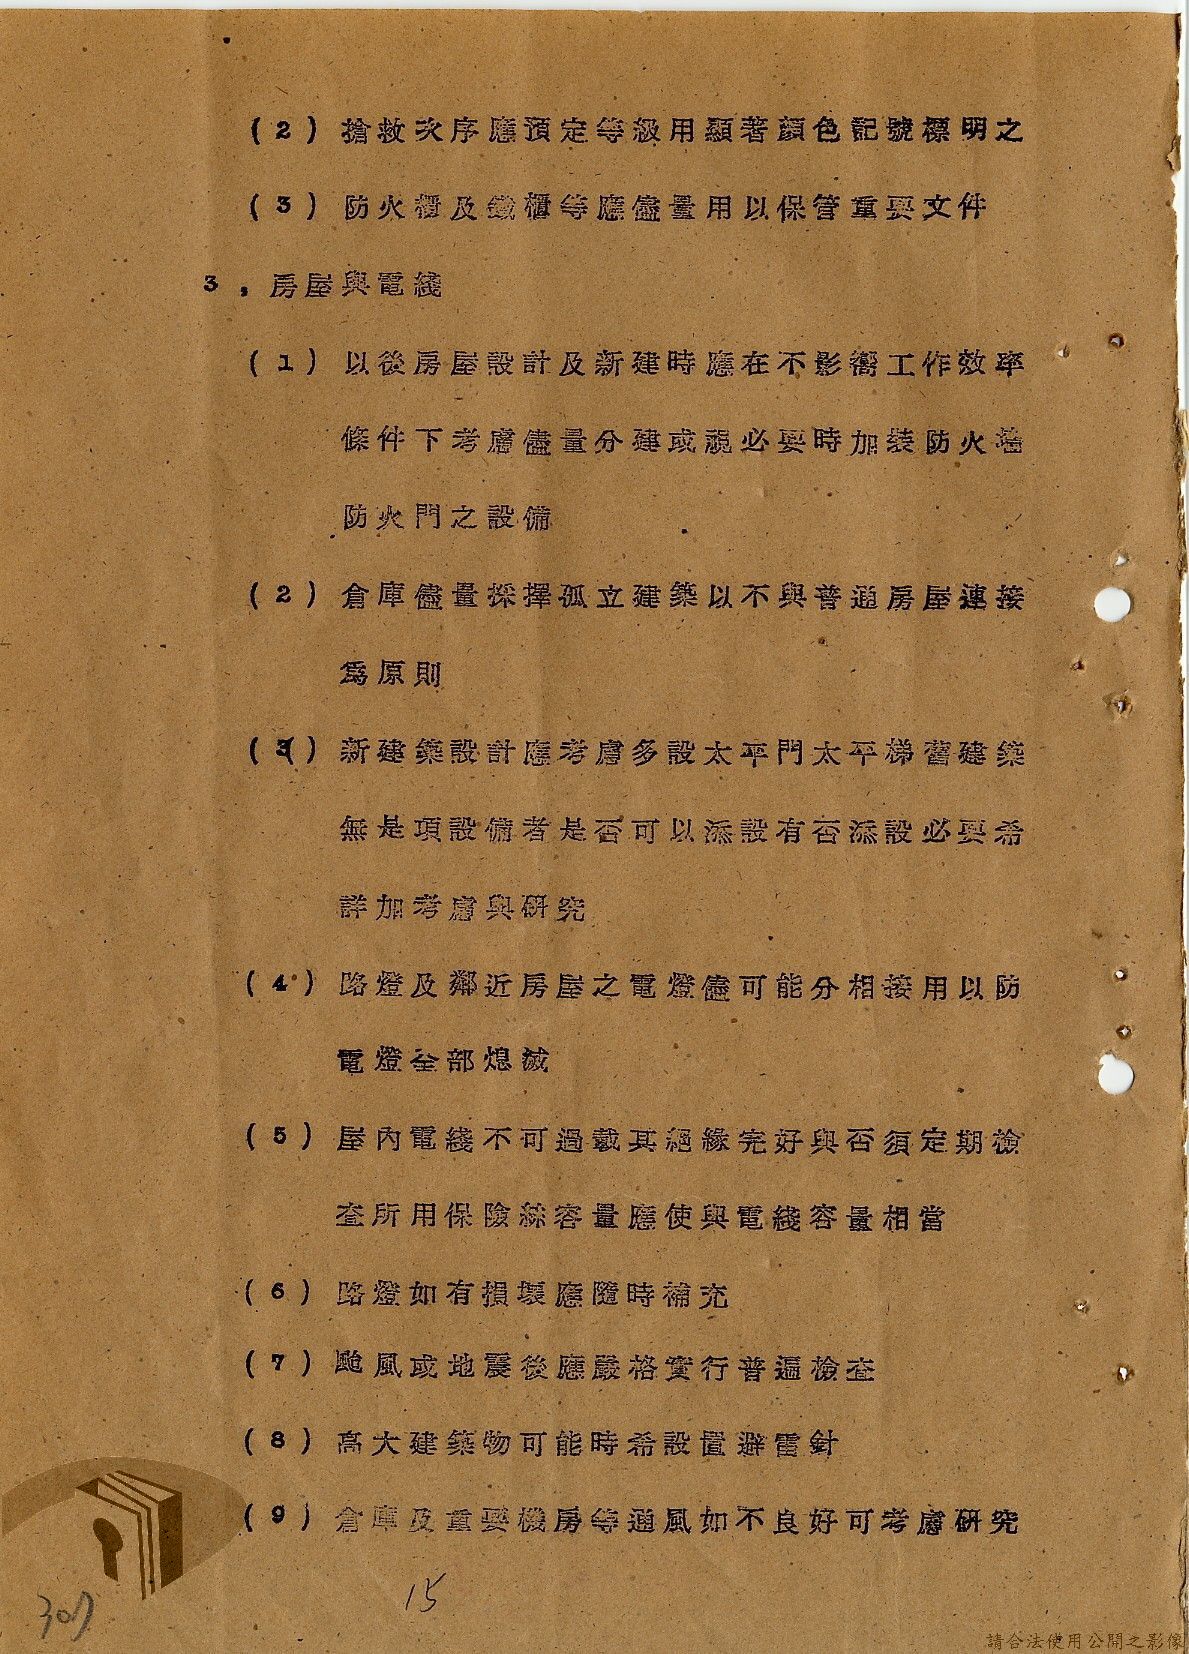 (2)搶救次序應預定等級用顯著顏色記號標明之
(3)防火櫃及鐵櫃等應儘量用以保管重要文件
3,房屋與電綫
(1)以後房屋設計及新建時應在不影嚮工作效率
條件下考慮儘量分建或視必要時加裝防火墻
防火門之設備
(2)倉庫儘量採擇孤立建築以不與普通房屋連接
為原則
(3)新建築設計應考慮多設太平門太平梯舊建築
無是項設備者是否可以添設有否添設必要希
詳加考慮與研究
(4)路燈及鄰近房屋之電燈儘可能分相接用以防
電燈全部熄滅
(5)屋內電綫不可過載其絕緣完好與否須定期檢
查所用保險絲容量應使與電綫容量相當
(6)路燈如有損壞應隨時補充
(7)颱風或地震後應嚴格實行普遍檢查
(8)高大建築物可能時希設置避雷針
(9)倉庫及重要機房等通風如不良好可考慮研究
15
307
請合法使用公開之影像